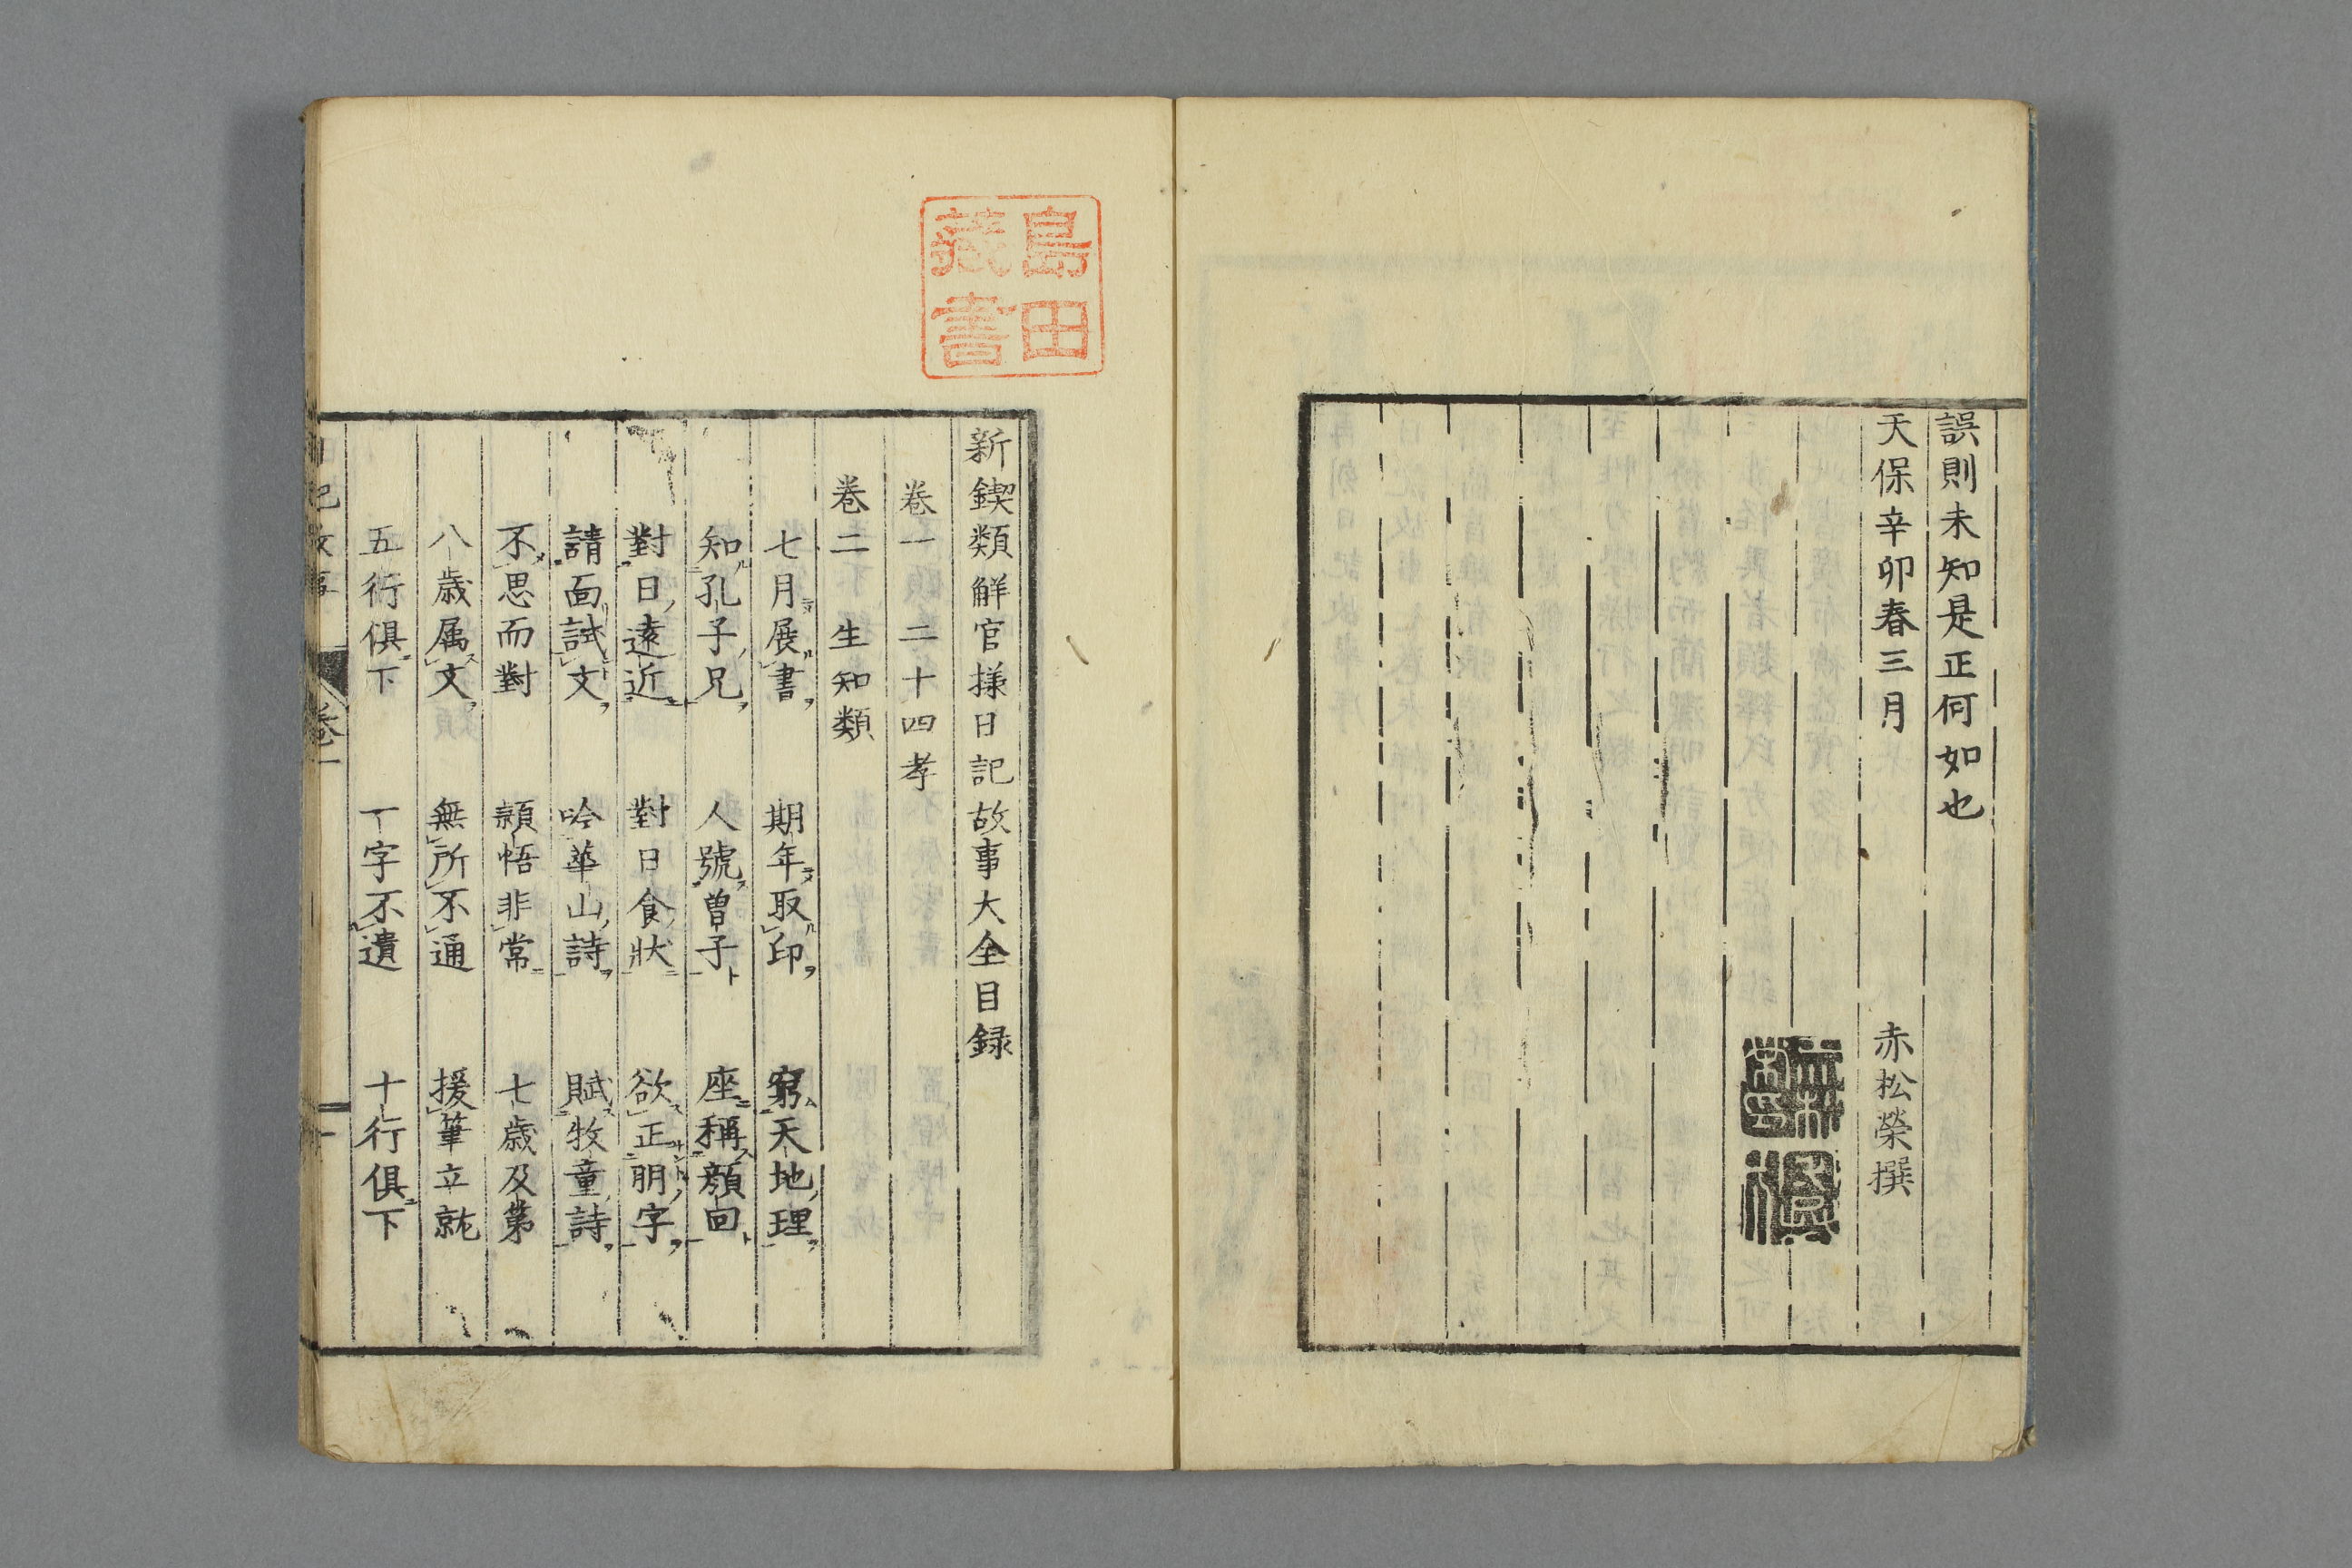 誤則未知是正何如也
天保辛卯春三月
赤松榮撰
島田
藏書
新鍥類解官様日記故事大全目録
卷一 二十四孝
卷二 生知類
七月展書 期年取印 窮天地理
知孔子兄 人號曽子 座稱顏回
對日遠近 對日食狀 欲正朋字
請面試文 吟華山詩 賦牧童詩
不思而對 穎悟非常 七歲及第
八歳属文 無所不通 援筆立就
五行俱下 一字不遺 十行俱下
日記故事 卷一 一